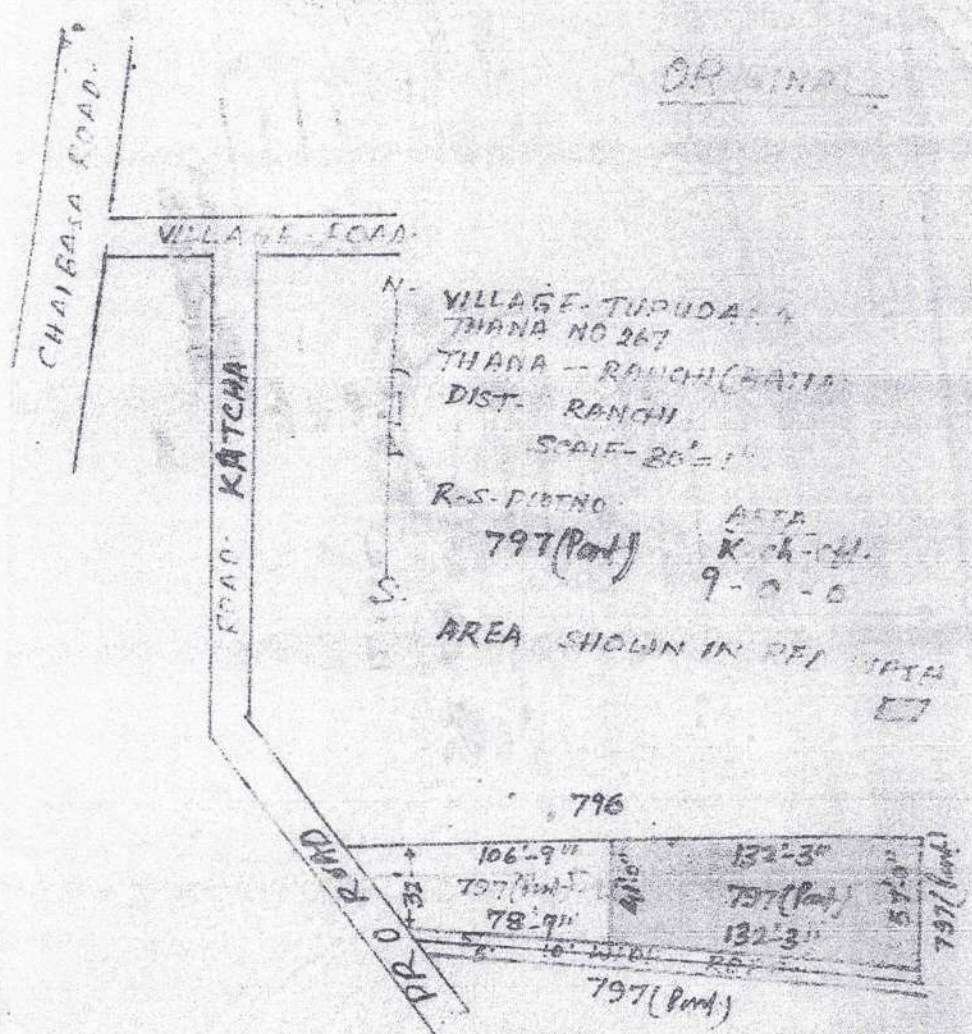 ORIGINAL
CHAIBASA ROAD.
VILLAGE-ROAD
KATCHA
ROAD
N-
S.
VILLAGE-TUPUDA
THANA NO 267
THANA - RANCHI
DIST- RANCHI
SCALE- 80'=1"
R-S-PLOTNO
797(Part)
K ch-
9-0-0
AREA SHOWN IN
796
PR. O ROAD
32'
106'-9"
797(Part)
78'-9"
41'-0"
132'-3"
797(Part)
132'-3"
57'-0"
797(Part)
WIDE
797(Part)